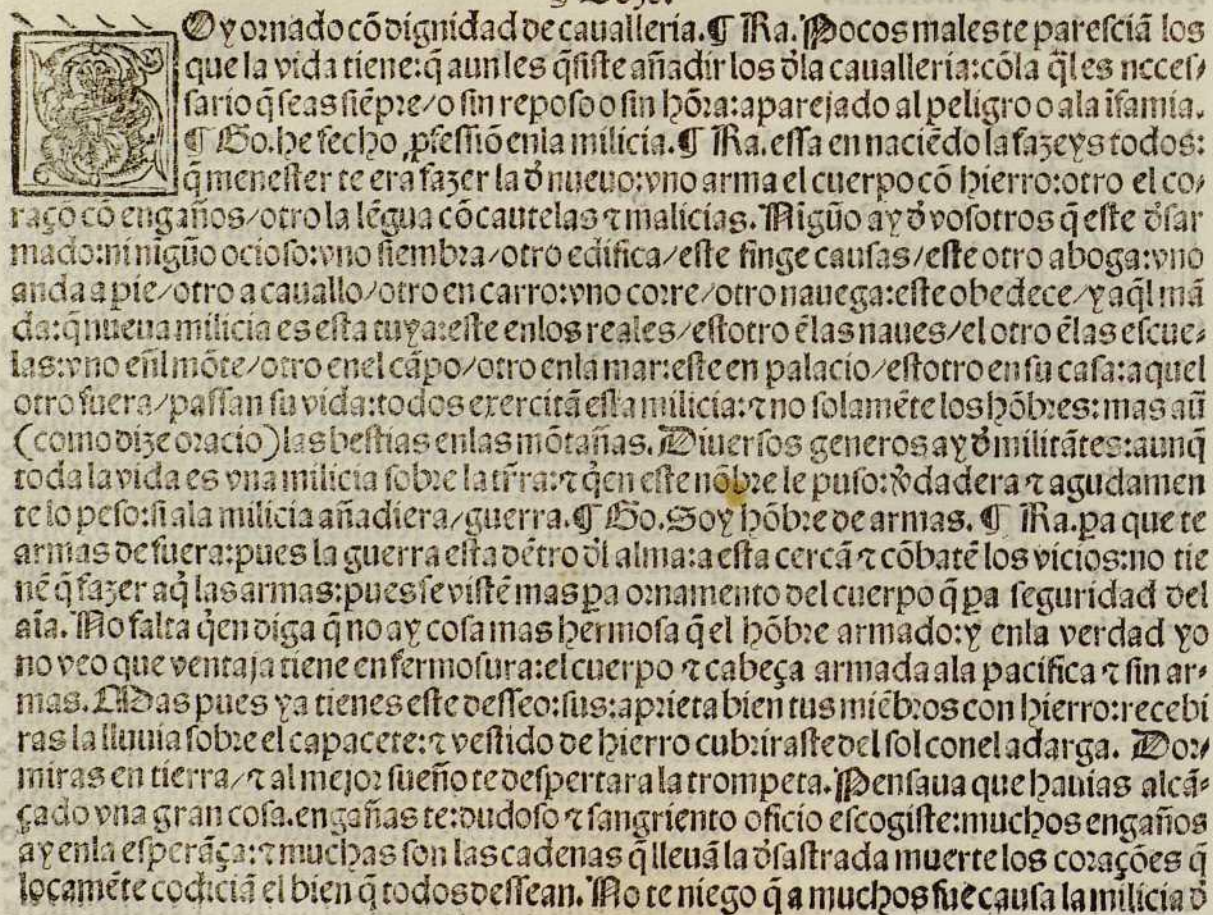 SOy ornado cõ dignidad de caualleria.¶ Ra. Pocos males te paresciã los
que la vida tiene: q̃ aun les q̃siste añadir los d̃la caualleria: cõ la q̃l es neces/
sario q̃ seas siẽpre/o sin reposo o sin hõra: aparejado al peligro o ala ĩfamia.
¶ Go. he fecho ꝓfessiõ enla milicia.¶ Ra. essa en naciẽdo la fazeys todos:
q̃ menester te era fazer la d̃ nueuo: vno arma el cuerpo cõ hierro: otro el co/
raçõ cõ engaños/otro la lẽgua cõ cautelas ⁊ malicias. Nigũo ay d̃ vosotros q̃ este d̃sar
mado: ni nigũo ocioso: vno siembra/otro edifica/este finge causas/este otro aboga: vno
anda a pie/otro a cauallo/otro en carro: vno corre/otro nauega: este obedece/y aq̃l mã
da: q̃ nueua milicia es esta tuya: este enlos reales/estotro ẽlas naues/el otro ẽlas escue/
las: vno eñl mõte/otro enel cãpo/otro enla mar: este en palacio/estotro en su casa: aquel
otro fuera/passan su vida: todos exercitã esta milicia: ⁊ no solamẽte los hõbres: mas aũ
(como dize oracio) las bestias enlas mõtañas. Diuersos generos ay d̃ militãtes: aunq̃
toda la vida es vna milicia sobre la tr̃ra: ⁊ q̃en este nõbre le puso: ṽdadera ⁊ agudamen
te lo peso: si ala milicia añadiera/guerra.¶ Go. Soy hõbre de armas. ¶ Ra. pa que te
armas de fuera: pues la guerra esta dẽtro d̃l alma: a esta cercã ⁊ cõbatẽ los vicios: no tie
nẽ q̃ fazer aq̃ las armas: pues se vistẽ mas pa ornamento del cuerpo q̃ pa seguridad del
aĩa. No falta q̃en diga q̃ no ay cosa mas hermosa q̃ el hõbre armado: y enla verdad yo
no veo que ventaja tiene en fermosura: el cuerpo ⁊ cabeça armada ala pacifica ⁊ sin ar/
mas. Mas pues ya tienes este desseo: sus: aprieta bien tus miẽbros con hierro: recebi
ras la lluuia sobre el capacete: ⁊ vestido de hierro cubriraste del sol con el adarga. Dor/
miras en tierra/⁊ al mejor sueño te despertara la trompeta. Pensaua que hauias alcã/
çado vna gran cosa. engañas te: dudoso ⁊ sangriento oficio escogiste: muchos engaños
ay enla esperãça: ⁊ muchas son las cadenas q̃ lleuã la d̃sastrada muerte los corações q̃
locamẽte codiciã el bien q̃ todos dessean. No te niego q̃ a muchos fue causa la milicia d̃